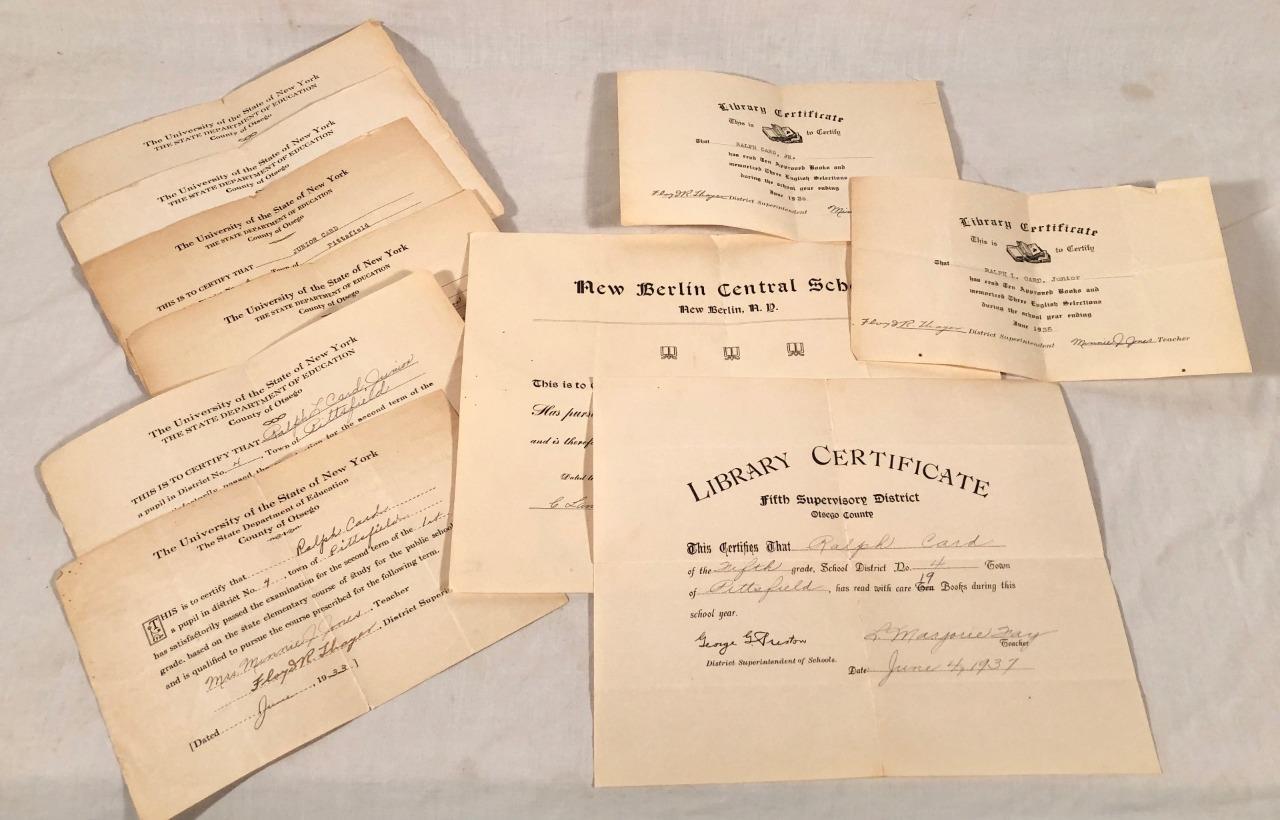 The University of the State of New York
THE STATE DEPARTMENT OF EDUCATION
County of Otsego
The University of the State of New York
THE STATE DEPARTMENT OF EDUCATION
County of Otsego
The University of the State of New York
THE STATE DEPARTMENT OF EDUCATION
County of Otsego
THIS IS TO CERTIFY THAT JUNIOR CARD
Town of Pittsfield
The University of the State of New York
THE STATE DEPARTMENT OF EDUCATION
County of Otsego
The University of the State of New York
THE STATE DEPARTMENT OF EDUCATION
County of Otsego
THIS IS TO CERTIFY THAT Ralph L Card, Junior
a pupil in District No. 4, Town of Pittsfield
for the second term of the
The University of the State of New York
The State Department of Education
County of Otsego
THIS is to certify that Ralph Card
a pupil in district No. 4, town of Pittsfield
has satisfactorily passed the examination for the second term of the 1st
grade, based on the state elementary course of study for the public
and is qualified to pursue the course prescribed for the following term.
Mrs. Minnie J. Jones, Teacher
Floyd R. Thayer, District
[Dated June, 1933.]
Library Certificate
This is to Certify
That RALPH CARD, JR.
has read Ten Approved Books and
memorized Three English Selections
during the school year ending
June
Floyd R. Thayer District Superintendent
Library Certificate
This is to Certify
That RALPH L. CARD, Junior
has read Ten Approved Books and
memorized Three English Selections
during the school year ending
June 1935
Floyd R. Thayer District Superintendent Minnie J. Jones Teacher
New Berlin Central
New Berlin, N. Y.
This is to
Has
and is
Dated
LIBRARY CERTIFICATE
Fifth Supervisory District
Otsego County
This Certifies That Ralph Card
of the Fifth grade, School District No. 4 Town
of Pittsfield, has read with care 19 Ten Books during this
school year.
George G. Preston L Marjorie Fay
Teacher
District Superintendent of Schools.
Date June 4, 1937